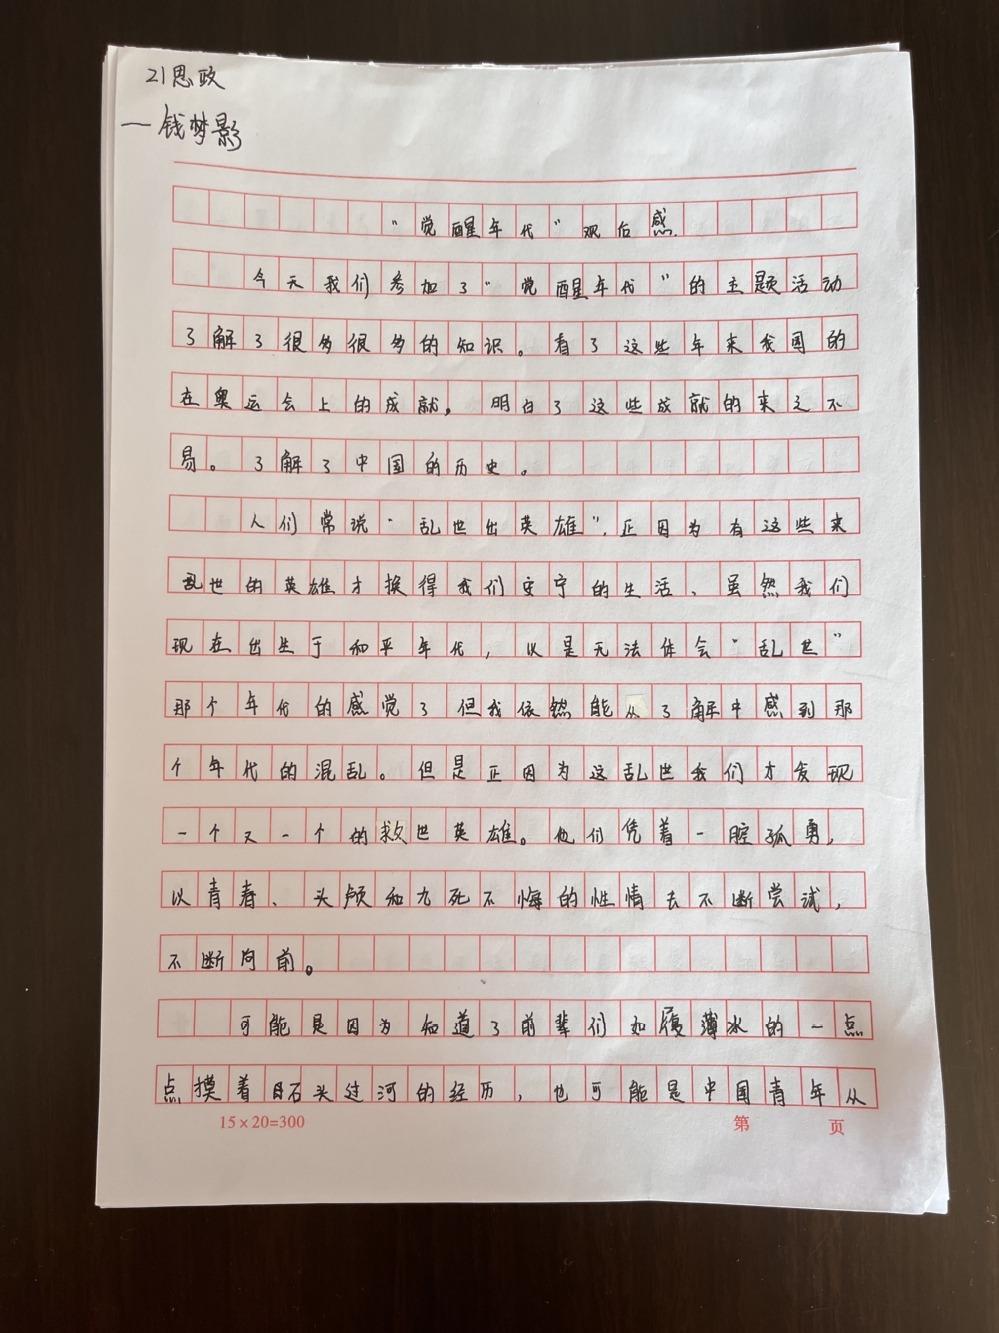 21思政
一钱梦影
“觉醒年代”观后感.
今天我们参加了“觉醒年代”的主题活动
了解了很多很多的知识。看了这些年来我国的
在奥运会上的成就，明白了这些成就的来之不
易。了解了中国的历史。
人们常说“乱世出英雄”，正因为有这些来
乱世的英雄才换得我们安宁的生活、虽然我们
现在出生于和平年代，以是无法体会“乱世”
那个年代的感觉了但我依然能从了解中感到那
个年代的混乱。但是正因为这乱世我们才发现
一个又一个的救世英雄。他们凭着一腔孤勇，
以青春、头颅和九死不悔的性情去不断尝试，
不断向前。
可能是因为知道了前辈们如履薄冰的一点
点摸着石头过河的经历，也可能是中国青年从
15×20=300
第 页